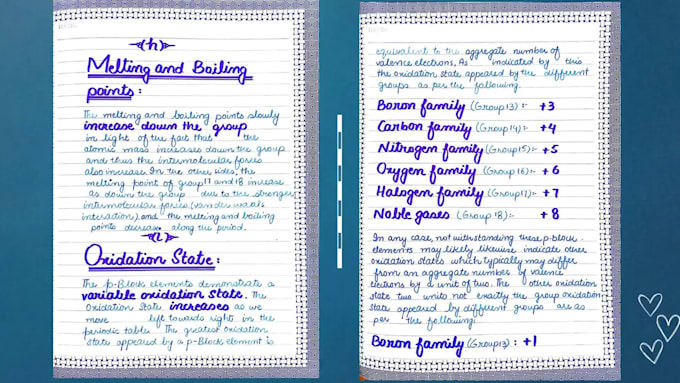 (h)
Melting and Boiling
points:
The melting and boiling points slowly
increase down the group
in light of the fact that the
atomic mass increases down the group
and thus the intermolecular forces
also increase. In the other sides, the
melting point of group 17 and 18 increase
as down the group due to the stronger
intermolecular forces (van der waals
interaction) and the melting and boiling
points decrease along the period.
(i)
Oxidation State:
The p-Block elements demonstrate a
variable oxidation state. The
Oxidation State increases as we
move left towards right in the
periodic table. The greatest oxidation
state appeared by a p-Block element is
equivalent to the aggregate number of
valence electrons, As indicated by this
the oxidation state appeared by the different
groups as per the following.
Boron family (Group 13) :- +3
Carbon family (Group 14) :- +4
Nitrogen family (Group 15) :- +5
Oxygen family (Group 16) :- +6
Halogen family (Group 17) :- +7
Noble gases (Group 18) :- +8
In any case, not withstanding these p-block
elements may likely likewise indicate other
oxidation states which typically may differ
from an aggregate number of valence
electrons by a unit of two. The other oxidation
state two units not exactly the group oxidation
state appeared by different groups are as
per the following:
Boron family (Group 13) : +1